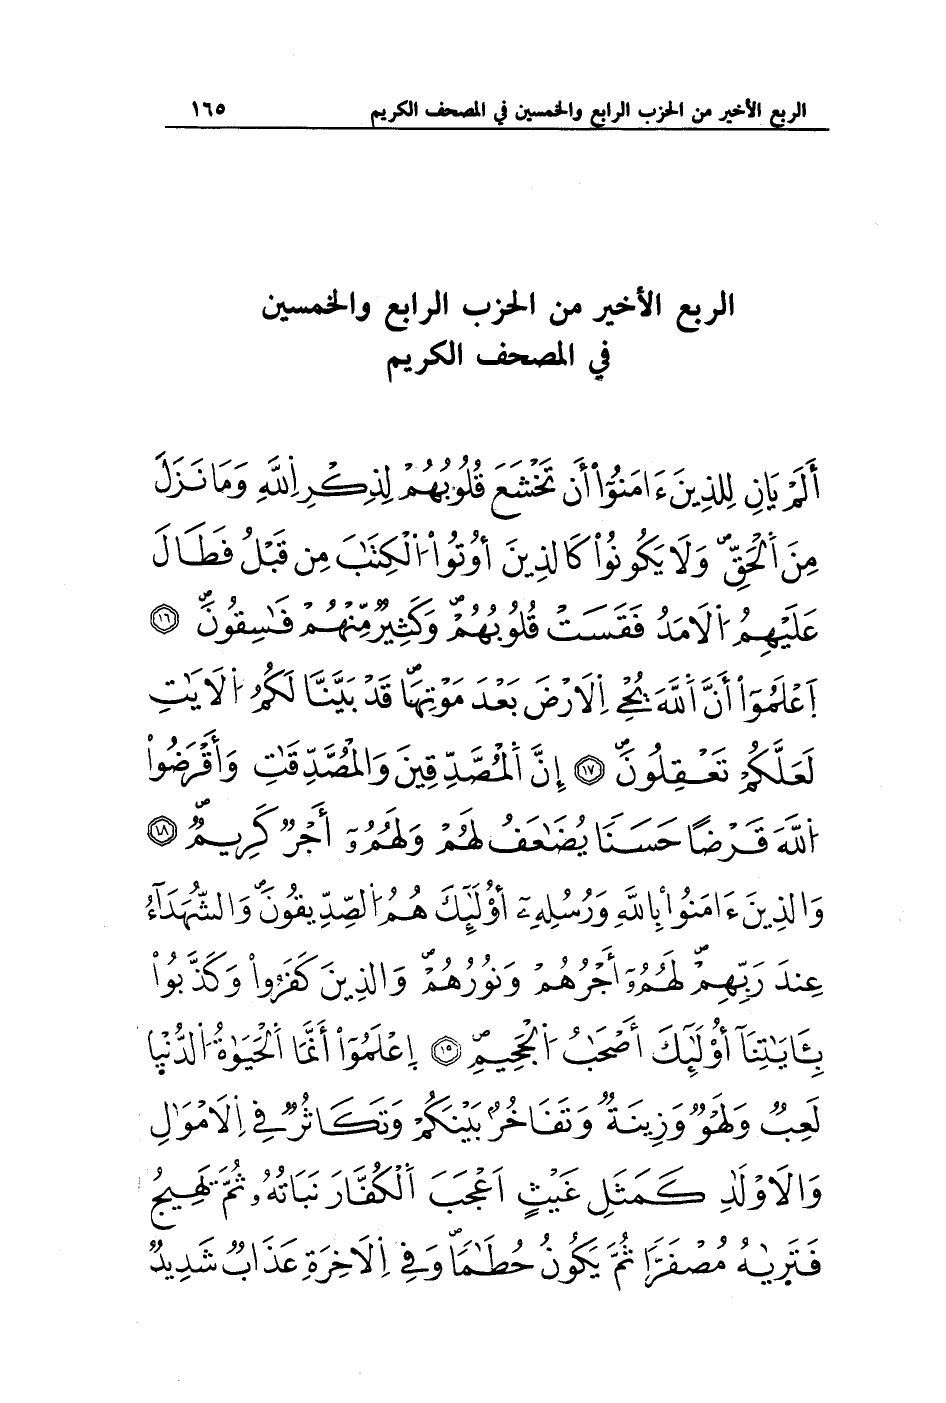 الربع الأخير من الحزب الرابع والخمسين في المصحف الكريم ١٦٥
الربع الأخير من الحزب الرابع والخمسين
في المصحف الكريم
أَلَمْ يَانِ لِلذِينَ ءَامَنُوٓاْ أَن تَخْشَعَ قُلُوبُهُمْ لِذِكْرِ اِ۬للَّهِ وَمَا نَزَّلَ
مِنَ اَ۬لْحَقِّ وَلَا يَكُونُواْ كَالذِينَ أُوتُواْ اُ۬لْكِتَٰبَ مِن قَبْلُ فَطَالَ
عَلَيْهِمُ اُ۬لَامَدُ فَقَسَتْ قُلُوبُهُمْ وَكَثِيرٌ مِّنْهُمْ فَٰسِقُونَ ١٦
اَ۪عْلَمُوٓاْ أَنَّ اَ۬للَّهَ يُحْيِ اِ۬لَارْضَ بَعْدَ مَوْتِهَا قَدْ بَيَّنَّا لَكُمُ اُ۬لَايَٰتِ
لَعَلَّكُمْ تَعْقِلُونَ ١٧ إِنَّ اَ۬لْمُصَّدِّقِينَ وَالْمُصَّدِّقَٰتِ وَأَقْرَضُواْ
اُ۬للَّهَ قَرْضًا حَسَنًا يُضَٰعَفُ لَهُمْ وَلَهُمُۥٓ أَجْرٌ كَرِيمٌ ١٨
وَالذِينَ ءَامَنُواْ بِاللَّهِ وَرُسُلِهِۦٓ أُوْلَٰٓئِكَ هُمُ اُ۬لصِّدِّيقُونَ وَالشُّهَدَآءُ
عِندَ رَبِّهِمْ لَهُمُۥٓ أَجْرُهُمْ وَنُورُهُمْ وَالذِينَ كَفَرُواْ وَكَذَّبُواْ
بِـَٔايَٰتِنَآ أُوْلَٰٓئِكَ أَصْحَٰبُ اُ۬لْجَحِيمِ ١٩ اِ۪عْلَمُوٓاْ أَنَّمَا اَ۬لْحَيَوٰةُ اُ۬لدُّنْيَا
لَعِبٌ وَلَهْوٌ وَزِينَةٌ وَتَفَاخُرٌۢ بَيْنَكُمْ وَتَكَاثُرٌ فِي اِ۬لَامْوَٰلِ
وَالَاوْلَٰدِ كَمَثَلِ غَيْثٍ اَعْجَبَ اَ۬لْكُفَّارَ نَبَاتُهُۥ ثُمَّ يَهِيجُ
فَتَرَىٰهُ مُصْفَرًّا ثُمَّ يَكُونُ حُطَٰمًا وَفِي اِ۬لَاخِرَةِ عَذَابٌ شَدِيدٌ